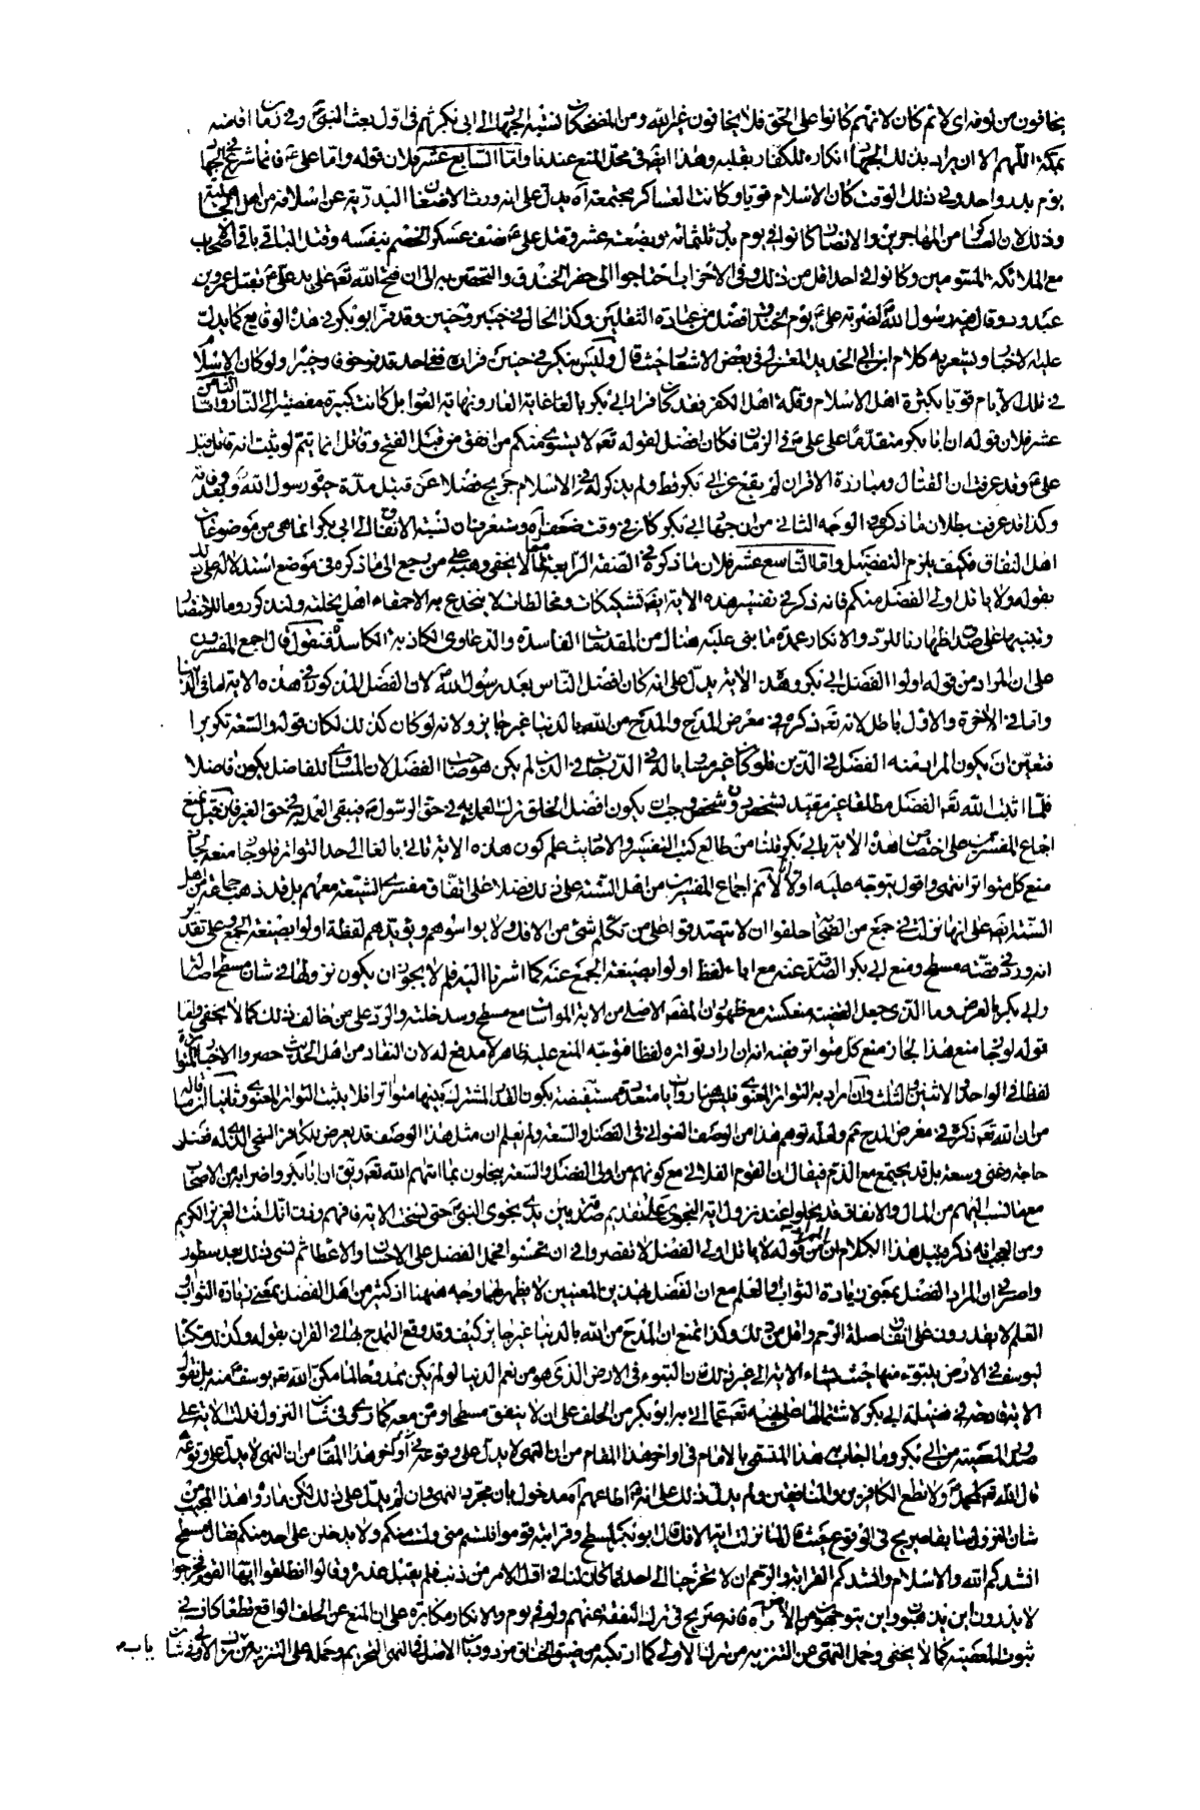 يخافون من لومة اى لائم كان لانهم كانوا على الحق فلا يخافون غير الله ومن المضحكات نسبة الجهاد الى ابى بكر ثم فى اول بعث النبى وفى زمان اقامته
بمكة اللهم الا ان يراد بذلك الجهاد انكاره للكفار بقلبه وهذا ايضا فى محل المنع عندنا واما السابع عشر فلان قوله واما على ع فانما شرع فى الجهاد
يوم بدر واحد وفى ذلك الوقت كان الاسلام قويا وكانت العساكر مجتمعة آه يدل على انه ورث الاضغان البدرية عن اسلافه من اهل الجاهلية
وذلك لان العساكر من المهاجرين والانصار كانوا فى يوم بدر ثلثمائة وبضعة عشر وقتل على ع نصف عسكر الخصم بنفسه وقتل الباقى باقى الاصحاب
مع الملائكة المسومين وكانوا فى احد اقل من ذلك وفى الاحزاب احتاجوا الى حفر الخندق والتحصن به الى ان فتح الله تعه على يد على ع بقتل عمرو بن
عبد ود وقال فيه رسول الله لضربة على يوم الخندق افضل من عبادة الثقلين وكذا الحال فى خيبر وحنين وقد فر ابو بكر فى هذه الوقايع كما يدل
عليه الاخبار ويشعر به كلام ابن ابى الحديد المعتزلى فى بعض الاشعار حيث قال وليس بنكر فى حنين فراره ففى احد قد فر خوفا وخيبرا ولو كان الاسلام
فى تلك الايام قويا بكثرة اهل الاسلام وقلة اهل الكفر فقد كان فرار ابى بكر بالغا غاية العار ونهاية العوار بل كانت كبيرة مفضية الى النار واما الثامن
عشر فلان قوله ان ابا بكر متقدما على على ع فى الزمان فكان افضل لقوله تعه لا يستوى منكم من انفق من قبل الفتح وقاتل انما يتم لو ثبت انه قاتل قبل
على ع وقد عرفت ان القتال ومبارزة الاقران لم يقع عن ابى بكر قط ولم يذكر له فى الاسلام جريح فضلا عن قتيل مدة حيوة رسول الله وبعد وفاته
وكذا قد عرفت بطلان ما ذكره فى الوجه الثانى من ان جهاد ابى بكر كان فى وقت ضعف آه وستعرف ان نسبة الانفاق الى ابى بكر انما هى من موضوعات
اهل النفاق فكيف يلزم التفضيل واما التاسع عشر فلان ما ذكره فى الصفة الرابعة مما لا يخفى وهنه على من رجع الى ما ذكره فى موضع استدلاله على ذلك
بقوله ولا ياتل اولى الفضل منكم فانه ذكر فى تفسير هذه الاية ايضا تشكيكات ومغالطات لا ينخدع به الا حمقاء اهل نحلته ولنذكر روما للاختصار
وتنبيها على صدق اظهارنا للرد والانكار عمدة ما بنى عليه هناك من المقدمات الفاسدة والدعاوى الكاذبة الكاسدة فنقول قال اجمع المفسرون
على ان المراد من قوله اولوا الفضل ابى بكر وهذه الاية يدل على انه كان افضل الناس بعد رسول الله ص لان الفضل المذكور فى هذه الاية اما فى الدنيا
واما فى الاخرة والاول باطل لانه تعه ذكره فى معرض المدح والمدح من الله بالدنيا غير جايز ولانه لو كان كذلك لكان قوله والسعة تكريرا
فتعين ان يكون المراد منه الفضل فى الدين فلو كان غيره مساويا له فى الدرجات فى الدين لم يكن هو صاحب الفضل لان المساوى للفاضل يكون فاضلا
فلما اثبت الله تعه الفضل مطلقا غير مقيد بشخص دون شخص وجب ان يكون افضل الخلق ترك العمل به فى حق الرسول ص فيبقى العمل به فى حق الغير فان قيل نمنع
اجماع المفسرين على اختصاص هذه الاية بابى بكر قلنا من طالع كتب التفسير والاحاديث علم كون هذه الاية فى ابى بالغا الى حد التواتر فلو جاز منعه لجاز
منع كل متواتر انتهى واقول يتوجه عليه اولا انا لا نم اجماع المفسرين من اهل السنة على ذلك فضلا على اتفاق مفسرى الشيعة معهم بل قد ذهب جماعة من اهل
السنة ايضا على انها نزلت فى جمع من الصحابة حلفوا ان لا يتصدقوا على من تكلم بشئ من الافك ولا يواسوهم ويؤيدهم لفظة اولوا بصيغة الجمع وعلى تقدير
انه ورد فى قصة مسطح ومنع ابى بكر الصدقة عنه مع اباء لفظ اولوا بصيغة الجمع عنه كما اشرنا اليه فلم لا يجوز ان يكون نزولها فى شان مسطح اصالة
ولابى بكر بالعرض وما الذى جعل القضية منعكسة مع ظهور ان المقصد الاصلى من الاية المواساة مع مسطح وسد خلته والرد على من خالف فى ذلك كما لا يخفى واما
قوله لو جاز منع هذا لجاز منع كل متواتر ففيه انه ان اراد تواتره لفظا فتوجه المنع عليه ظاهر لا مدفع له لان النقاد من اهل الحديث حصروا الاخبار المتواترة
لفظا فى الواحد او الاثنين او الثلث وان اراد به التواتر المعنوى فليس هنا روايات متعددة مستفيضة يكون القدر المشترك بينها متواترا فلا يثبت التواتر المعنوى وثانيا ان ما قاله
من ان الله تعه ذكره فى معرض المدح نم ولعله توهم هذا من الوصف العنوانى فى الفضل والسعة ولم يعلم ان مثل هذا الوصف قد يعرض للكافر السخى الذى له فضل
حاجة وغنى وسعة بل قد يجتمع مع الذم فيقال ان القوم الفلانى مع كونهم من اولى الفضل والسعة يبخلون بما اتيهم الله تعه ويؤيده ان ابا بكر واضرابه من الاصحاب
مع ما نسب اليهم من المال والانفاق قد بخلوا عند نزول اية النجوى على تقديم صدقة بين يدى نجوى النبى ص حتى نسخت الاية فافهم وفت انك انت العزيز الكريم
ومن العجب انه ذكر قبيل هذا الكلام ان المراد من قوله لا ياتل اولى الفضل لا تقصروا فى ان تحسنوا فحمل الفضل على الاحسان والاعطاء ثم نسى ذلك بعد سطور
واصر فى ان المراد الفضل بمعنى زيادة الثواب او العلم مع ان الفضل بهذين المعنيين لا يظهر لهما وجه هيهنا اذ كثير من اهل الفضل بمعنى زيادة الثواب او
العلم لا يقدرون على انفاق صلة الرحم واقل من ذلك وكذا نمنع ان المدح من الله بالدنيا غير جايز كيف وقد وقع التمدح بها فى القران بقوله وكذلك مكنا
ليوسف فى الارض يتبوء منها حيث يشاء الاية الى غير ذلك فان التبوء فى الارض الذى هو من نعم الدنيا لو لم يكن ممدوحا لما مكن الله تعه يوسف منه بل نقول
الاية قادحة فى فضيلة ابى بكر لاشتمالها على نهيه تعه عما اتى به ابو بكر من الحلف على ان لا ينفق مسطحا ومن معه كما روى فى شان النزول فدلت الاية على
صدور المعصية من ابى بكر وما اجاب به هذا المتسمى بالامام فى اواخر هذا المقام من ان النهى لا يدل على وقوعه
قال الله تعه لمحمد ولا تطع الكافرين والمنافقين ولم يدل ذلك على انه ص اطاعهم آه مدخول بان مجرد النهى وان لم يدل على ذلك لكن ما رواه هذا المجيب من
شان النزول سابقا صريح فى الوقوع حيث قال لما نزلت اية الافك قال ابو بكر لمسطح وقرابته قوموا فلستم منى ولست منكم ولا يدخلن على احد منكم فقال مسطح
انشدكم الله والاسلام وانشدكم القرابة والرحم ان لا تحوجنا الى احد فما كان لنا فى اول الامر من ذنب فلم يقبل عذره وقالوا انطلقوا ايها القوم فخرجوا
لا يدرون اين يذهبون واين يتوجهون من الارض آه فانه صريح فى ترك النفقة عنهم ولو فى يوم والانكار مكابرة على ان المنع عن الحلف الواقع قطعا كاف فى
ثبوت المعصية كما لا يخفى وحمل النهى عن التنزيه من ترك الاولى كما ارتكبه من ضيق الخناق مردود بان الاصل فى النهى التحريم وحمله على التنزيه من ترك الاولى فى شان